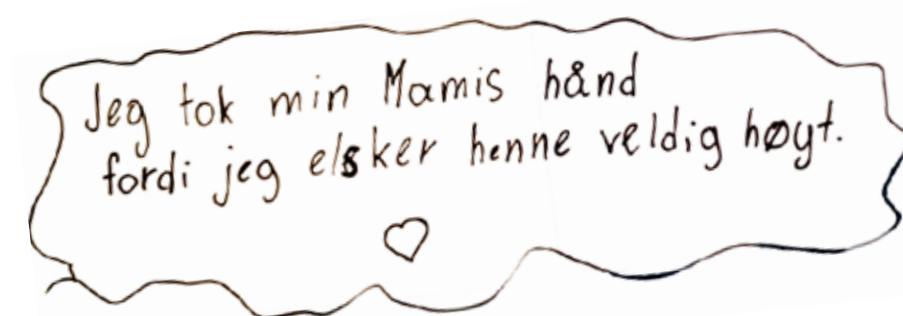 Jeg tok min Mamis hånd
fordi jeg elsker henne veldig høyt.